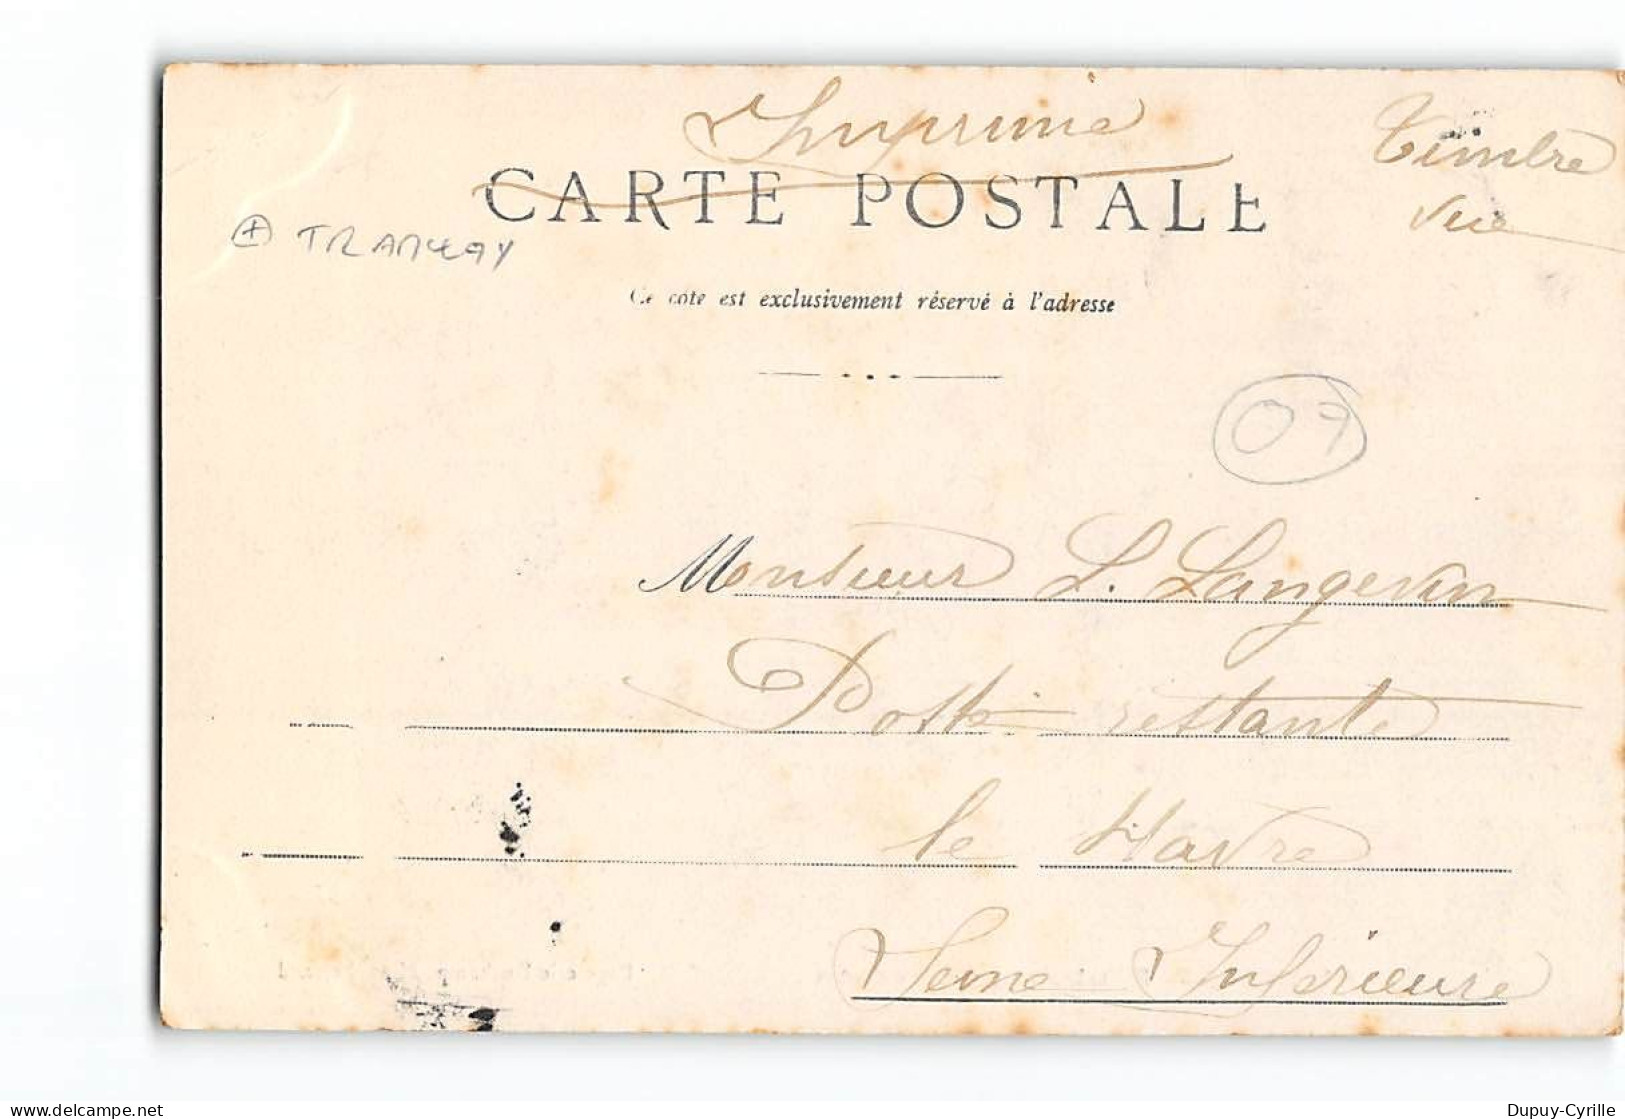 Imprimé
Timbre
vue
CARTE POSTALE
+ TRAMWAY
Ce côté est exclusivement réservé à l'adresse
07
Monsieur L. Langevin
Poste restante
le Havre
Seine Inférieure
Dupuy-Cyrille